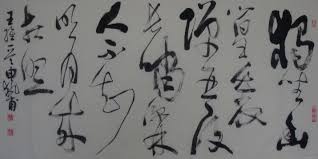 獨坐幽
篁里
彈琴復
長嘯深林
人不知
明月來
相照
王維